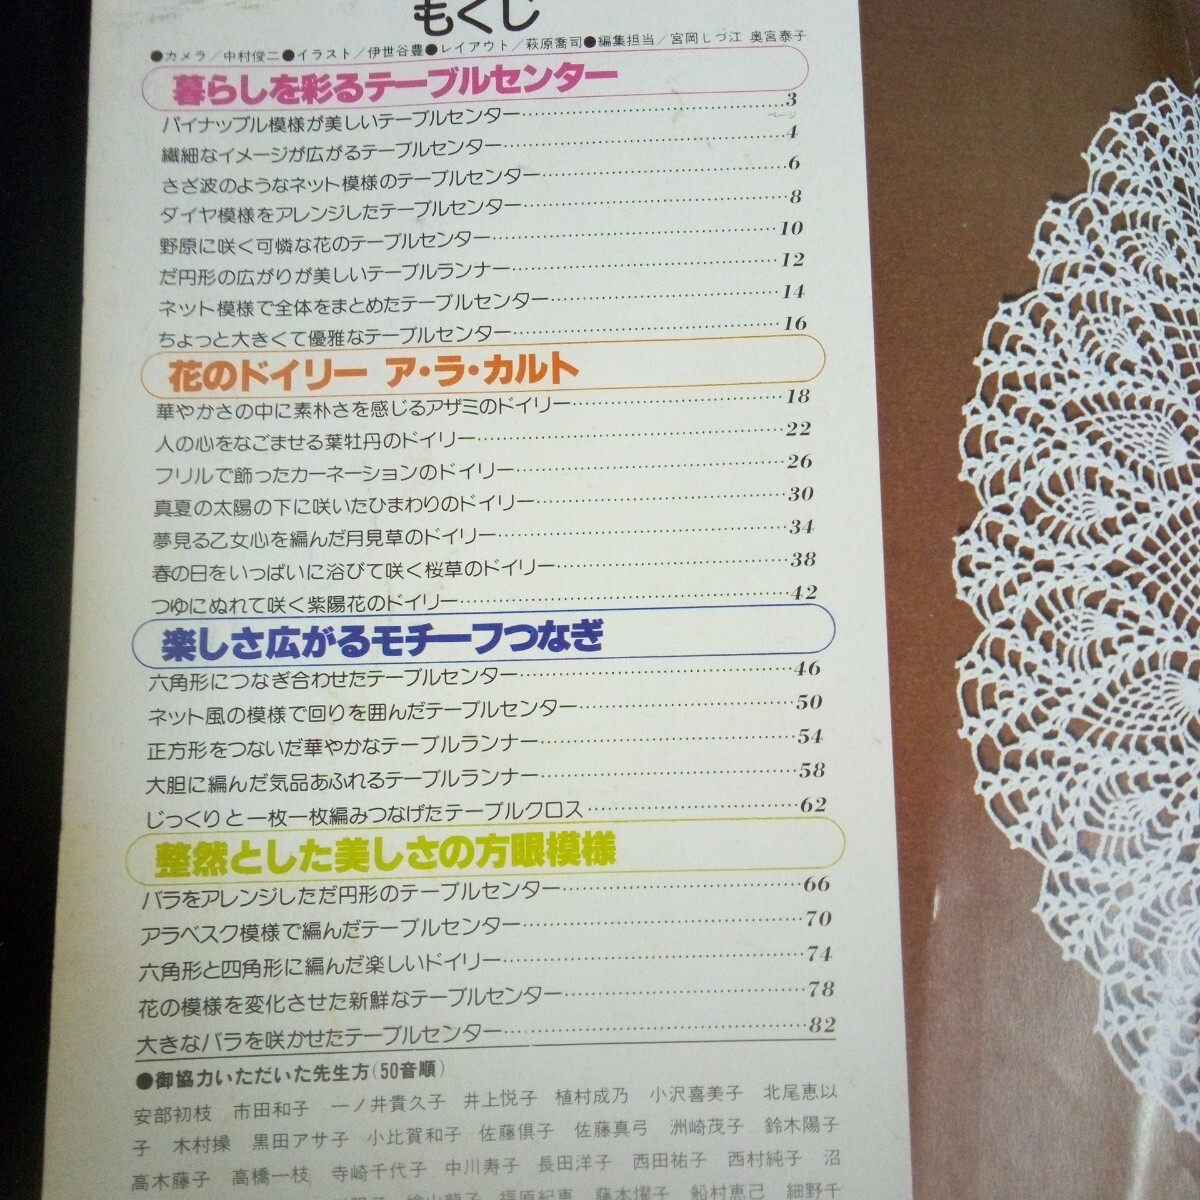 もくじ
●カメラ/中村俊二●イラスト/伊世谷豊●レイアウト/萩原喬司●編集担当/宮岡しづ江 奥宮泰子
暮らしを彩るテーブルセンター
パイナップル模様が美しいテーブルセンター……3
ページ
繊細なイメージが広がるテーブルセンター……4
さざ波のようなネット模様のテーブルセンター……6
ダイヤ模様をアレンジしたテーブルセンター……8
野原に咲く可憐な花のテーブルセンター……10
だ円形の広がりが美しいテーブルランナー……12
ネット模様で全体をまとめたテーブルセンター……14
ちょっと大きくて優雅なテーブルセンター……16
花のドイリー ア・ラ・カルト
華やかさの中に素朴さを感じるアザミのドイリー……18
人の心をなごませる葉牡丹のドイリー……22
フリルで飾ったカーネーションのドイリー……26
真夏の太陽の下に咲いたひまわりのドイリー……30
夢見る乙女心を編んだ月見草のドイリー……34
春の日をいっぱいに浴びて咲く桜草のドイリー……38
つゆにぬれて咲く紫陽花のドイリー……42
楽しさ広がるモチーフつなぎ
六角形につなぎ合わせたテーブルセンター……46
ネット風の模様で回りを囲んだテーブルセンター……50
正方形をつないだ華やかなテーブルランナー……54
大胆に編んだ気品あふれるテーブルランナー……58
じっくりと一枚一枚編みつなげたテーブルクロス……62
整然とした美しさの方眼模様
バラをアレンジしただ円形のテーブルセンター……66
アラベスク模様で編んだテーブルセンター……70
六角形と四角形に編んだ楽しいドイリー……74
花の模様を変化させた新鮮なテーブルセンター……78
大きなバラを咲かせたテーブルセンター……82
●御協力いただいた先生方(50音順)
安部初枝 市田和子 一ノ井貴久子 井上悦子 植村成乃 小沢喜美子 北尾恵以
子 木村操 黒田アサ子 小比賀和子 佐藤倶子 佐藤真弓 洲崎茂子 鈴木陽子
高木藤子 高橋一枝 寺崎千代子 中川寿子 長田洋子 西田祐子 西村純子 沼
檜山龍子 福原紀恵 藤本熠子 船村恵己 細野千